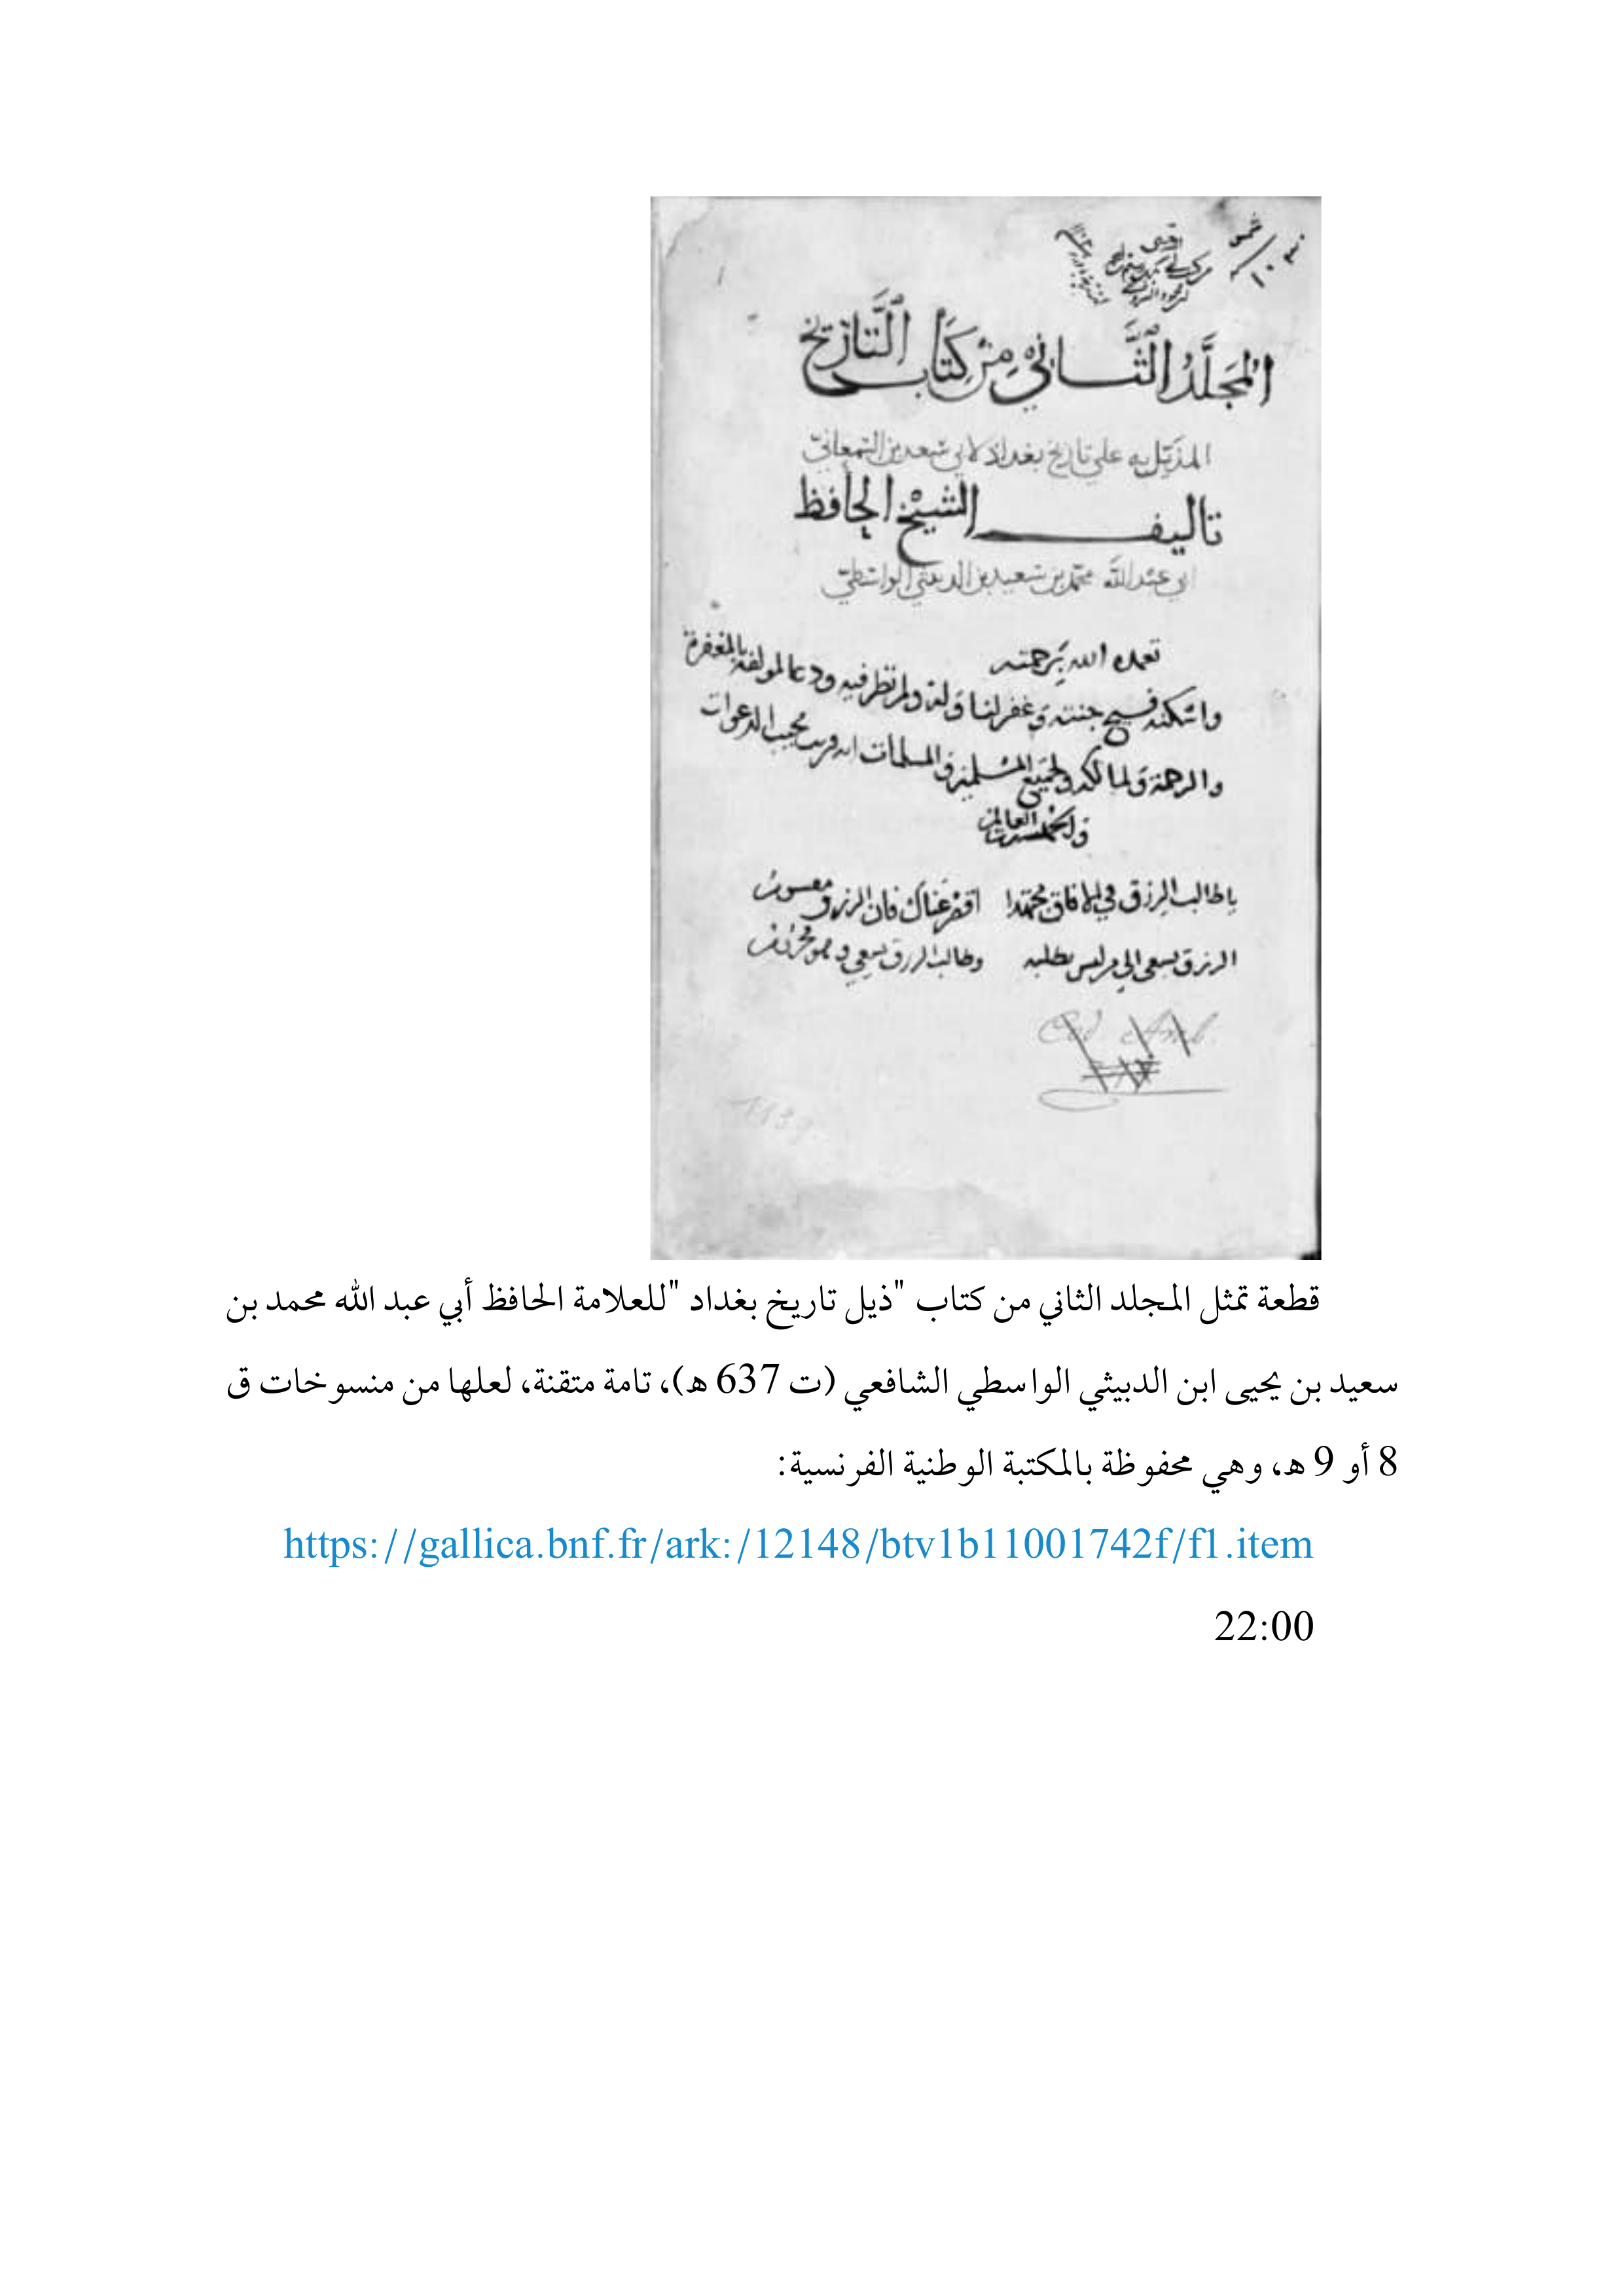 المُجَلَّدُ الثَّاني مِن كِتَاب التَّاريخ
المذيّل به على تاريخ بغداد لابي سَعد بن السّمعانيّ
تاليف الشيْخ الحَافظ
ابي عبْد الله محمّد بن سَعيد بن الدبيثي الواسْطيّ
تغمده الله برَحمته
واسْكنه فسيح جنته وَغفر لنا وَله ولمن نظر فيه ودعا لمولفه بالمغفرة
والرحمة وَلمالكه ولجَميْع المسْلمين والمسلمات انه قريب مجيب الدعوات
والحمْد لله رب العالمين
يا طالب الرزق في الافاق مجتهدا اقصر عناك فان الرزق مقسوم
الرزق يسعى الى من ليس يطلبه وطالب الرزق يسعى وهو محروم
Cod Arab.
قطعة تمثل المجلد الثاني من كتاب "ذيل تاريخ بغداد "للعلامة الحافظ أبي عبد الله محمد بن
سعيد بن يحيى ابن الدبيثي الواسطي الشافعي (ت 637 هـ)، تامة متقنة، لعلها من منسوخات ق
8 أو 9 هـ، وهي محفوظة بالمكتبة الوطنية الفرنسية:
https://gallica.bnf.fr/ark:/12148/btv1b11001742f/f1.item
22:00